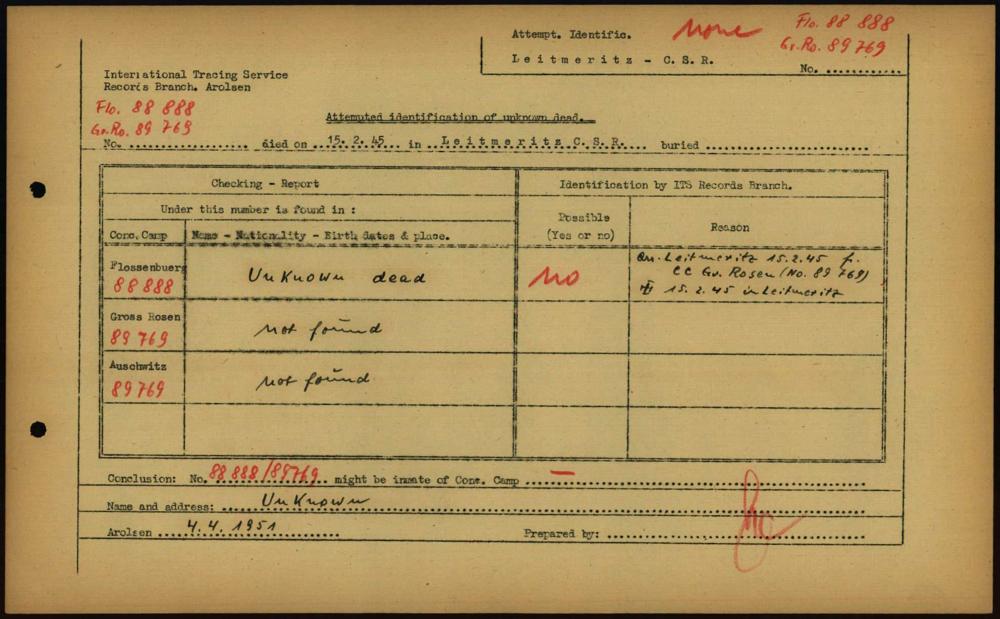 Attempt. Identific. none Flo. 88 888
Gr.Ro. 89 769
Leitmeritz - C.S.R.
No. ............
International Tracing Service
Records Branch. Arolsen
Flo. 88 888
Gr.Ro. 89 769
Attempted identification of unknown dead.
No. .................... died on ...15. 2. 45... in ..Leitmeritz C.S.R.... buried ............................
Checking - Report
Identification by ITS Records Branch.
Under this number is found in :
Possible
(Yes or no)
Reason
Conc. Camp
Name - Nationality - Birth dates & place.
Flossenbuerg
88 888
Unknown dead
no
Leitmeritz 15.2.45 f.
CC Gr. Rosen (No. 89 769)
15. 2. 45 in Leitmeritz
Gross Rosen
89 769
not found
Auschwitz
89769
not found
Conclusion: No. 88 888/89769 might be inmate of Conc. Camp —
Name and address: Unknown
Arolsen 4. 4. 1951
Prepared by: